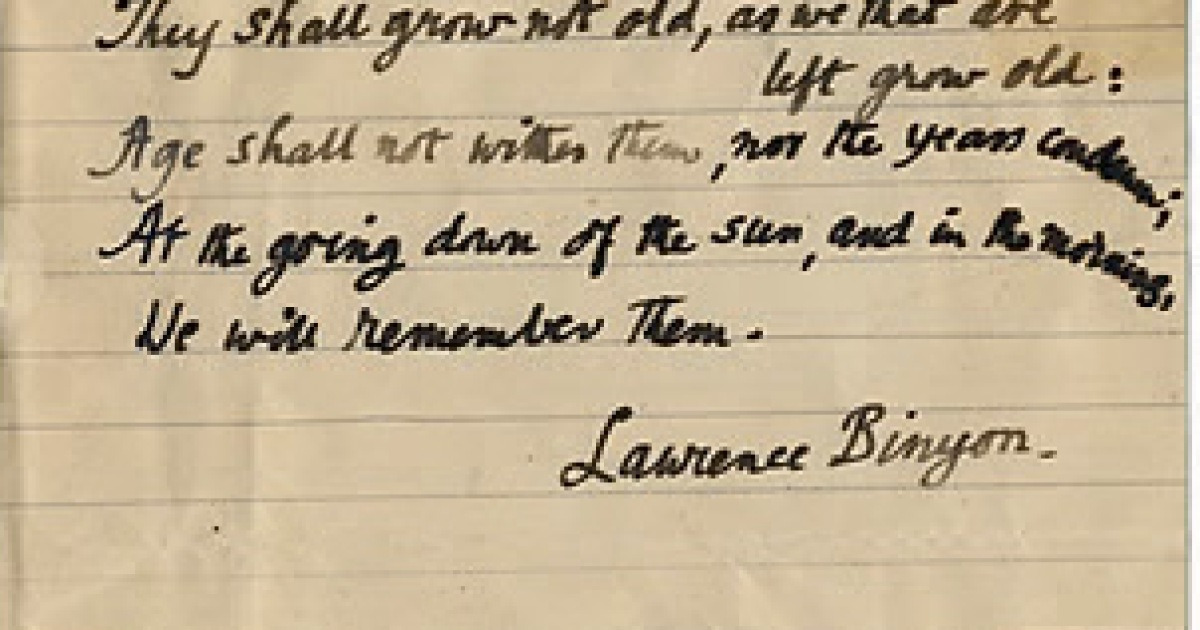 They shall grow not old, as we that are
left grow old:
Age shall not wither them, nor the years condemn;
At the going down of the sun, and in the morning,
We will remember Them.
Lawrence Binyon.